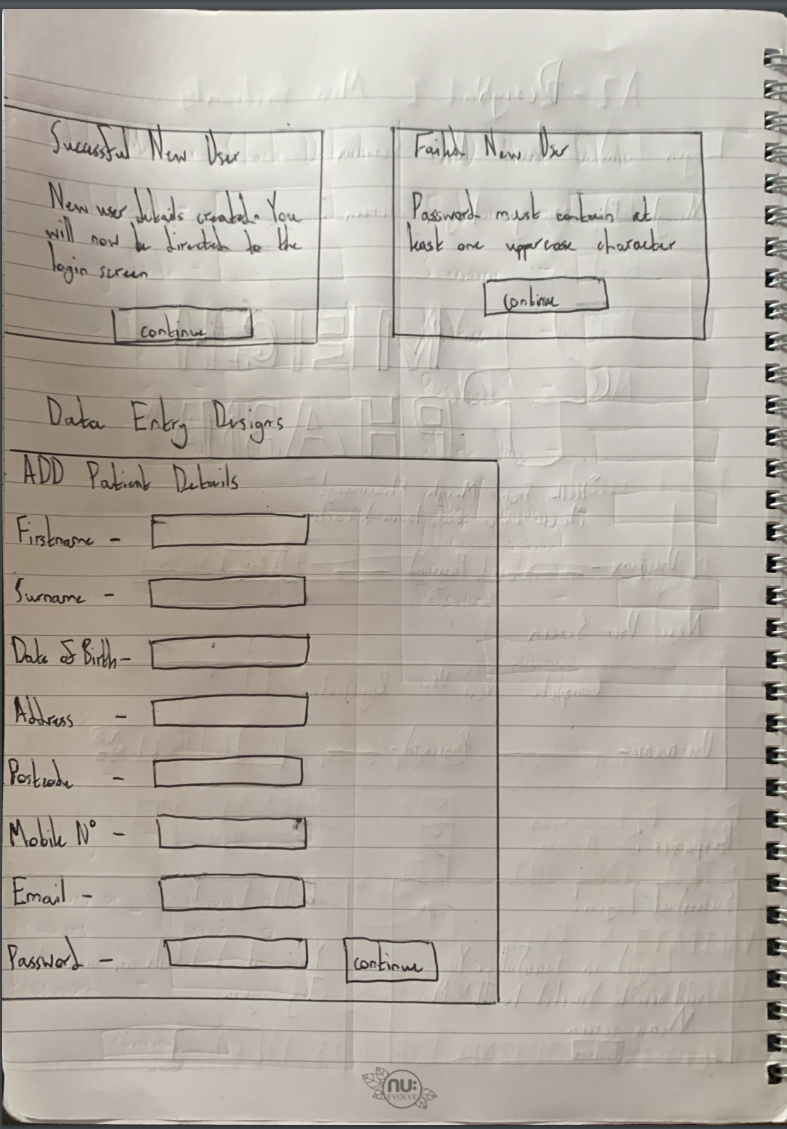 Sucessful New User
New user details created. You
will now be directed to the
login screen
continue
Failed New User
Password must contain at
least one uppercase character
continue
Data Entry Designs
ADD Patient Details
Firstname -
Surname -
Date of Birth -
Address -
Postcode -
Mobile N° -
Email -
Password -
continue
nu:
EVOLVE